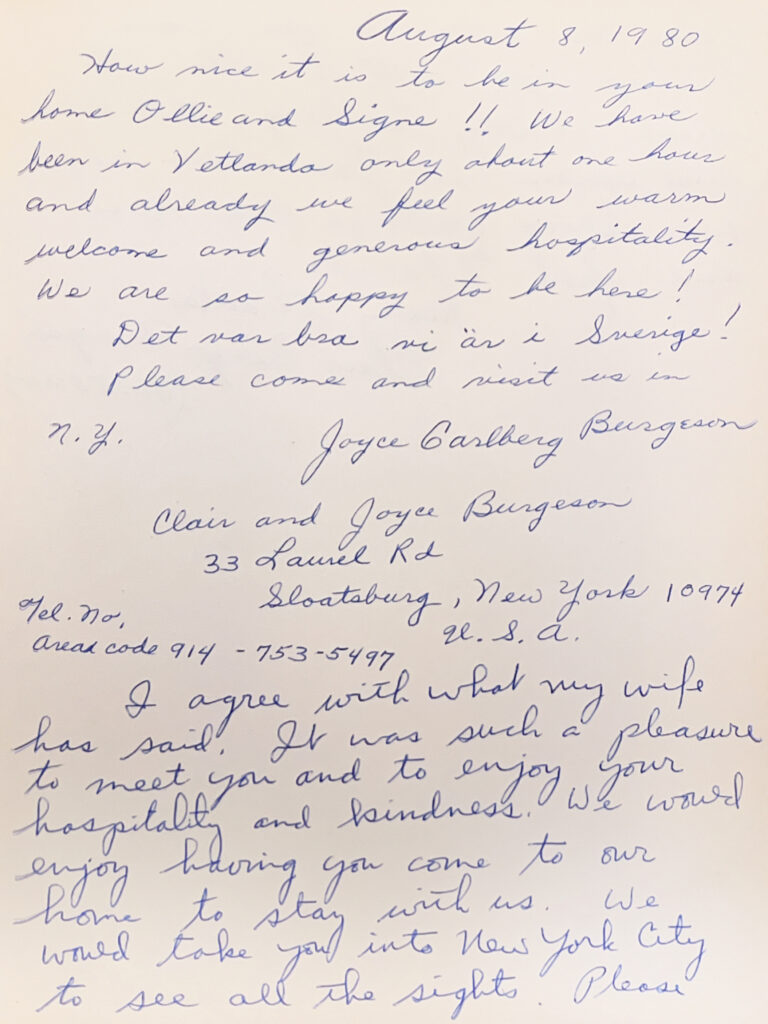 August 8, 1980
How nice it is to be in your
home Ollie and Signe !! We have
been in Vetlanda only about one hour
and already we feel your warm
welcome and generous hospitality.
We are so happy to be here!
Det var bra vi är i Sverige!
Please come and visit us in
N.Y. Joyce Carlberg Burgeson
Clair and Joyce Burgeson
33 Laurel Rd
Sloatsburg, New York 10974
U. S. A.
Tel. No,
Area code 914 - 753-5497
I agree with what my wife
has said. It was such a pleasure
to meet you and to enjoy your
hospitality and kindness. We would
enjoy having you come to our
home to stay with us. We
would take you into New York City
to see all the sights. Please